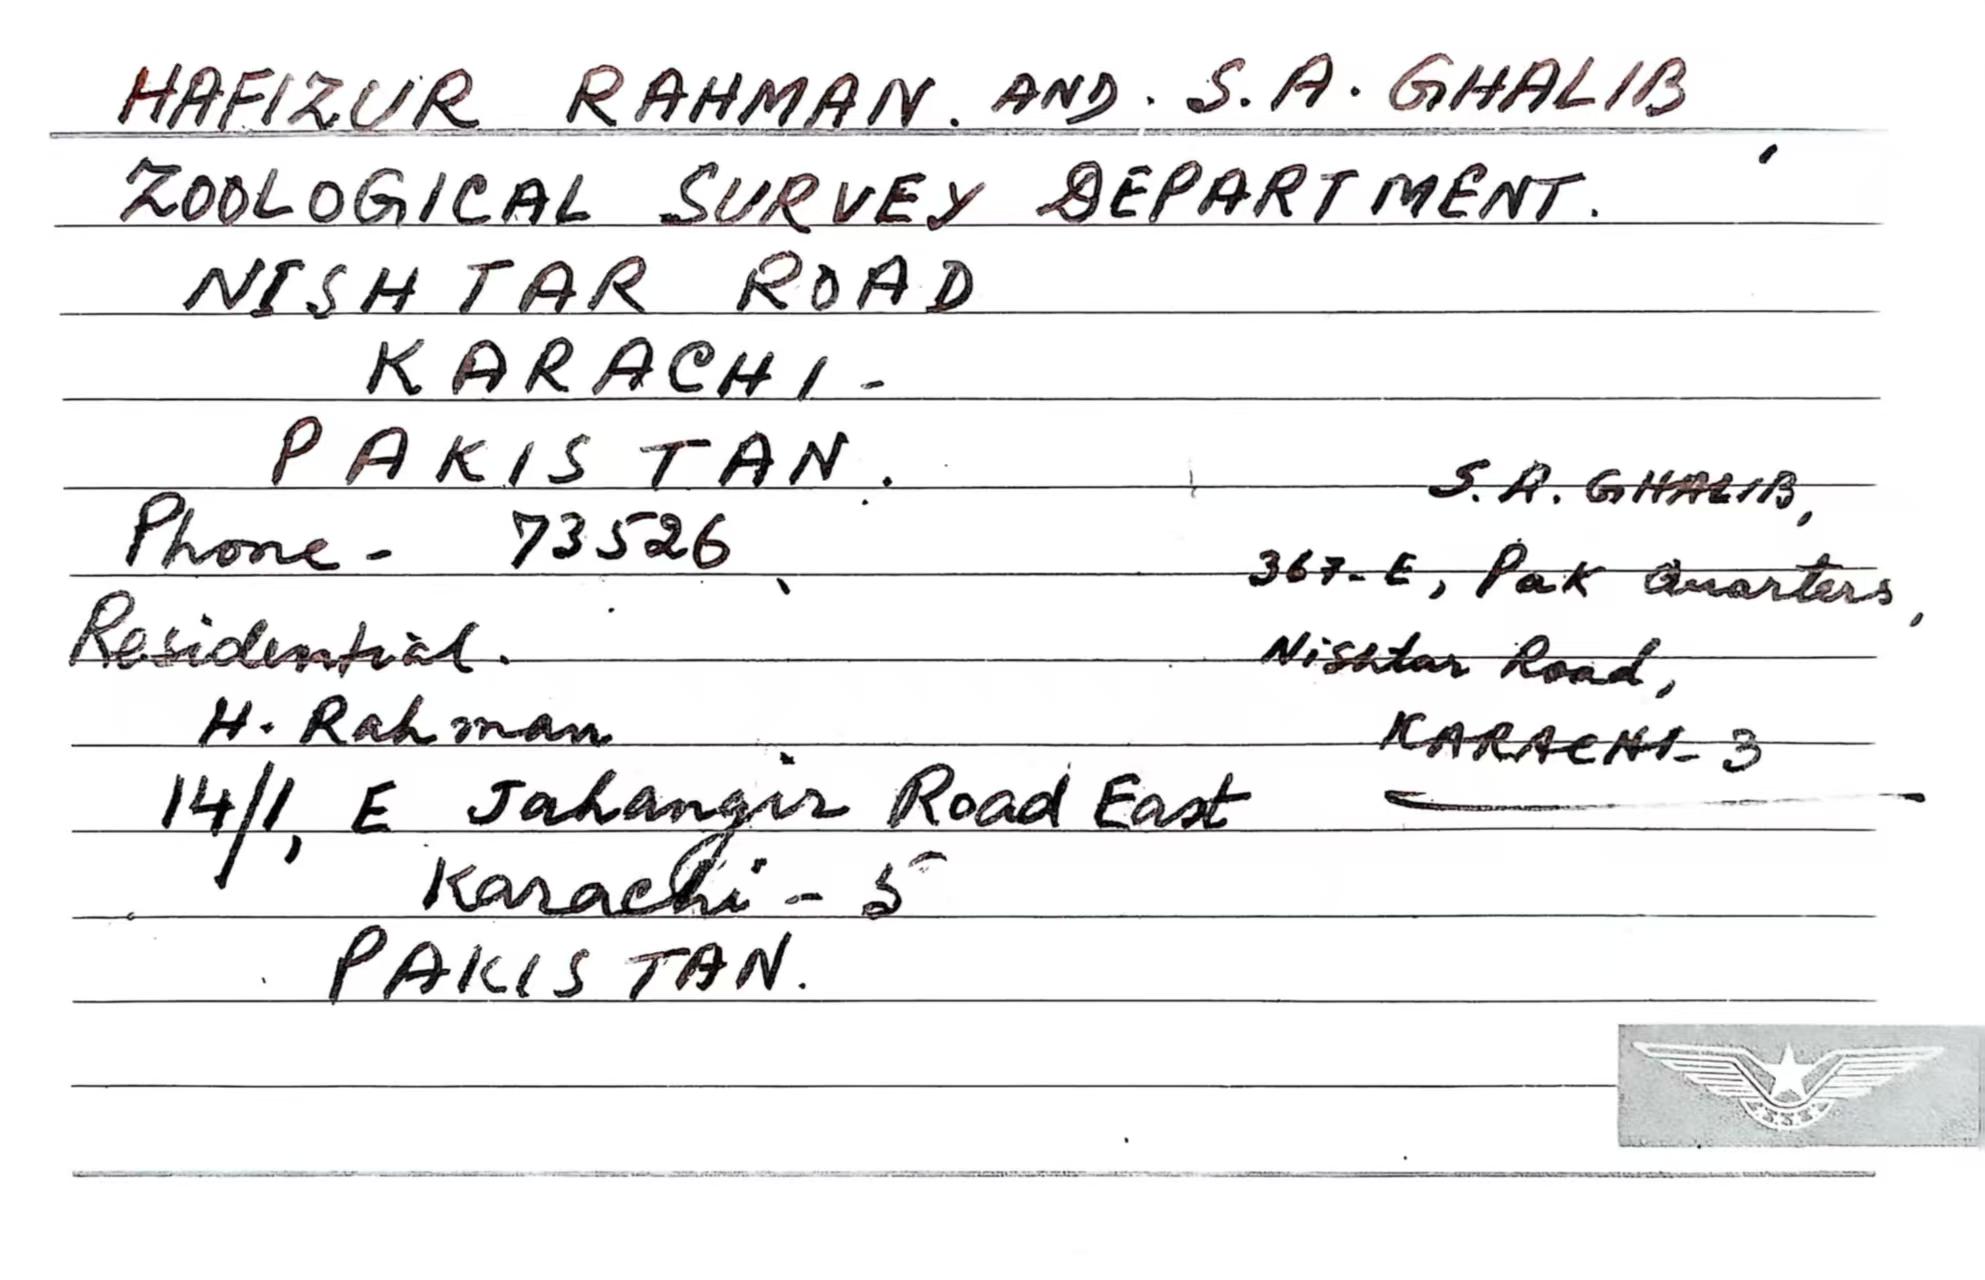 HAFIZUR RAHMAN. AND. S. A. GHALIB
ZOOLOGICAL SURVEY DEPARTMENT.
NISHTAR ROAD
KARACHI-
PAKISTAN.
Phone - 73526
Residential.
H. Rahman
14/1, E Jahangir Road East
Karachi - 5
PAKISTAN.
S. A. GHALIB,
367-E, Pak Quarters,
Nishtar Road,
KARACHI-3